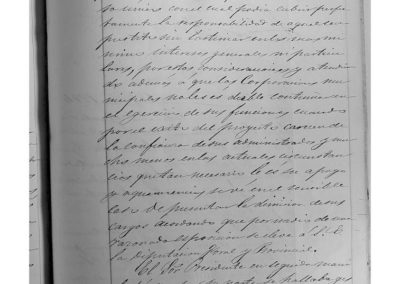 sa unica con el cual podia cubrir prope
tamente la responsabilidad de aquel em
prestito sin lastimar en lo mas mi
nimo intereses generales ni particu
lares, por estas consideraciones y atendien
do ademas a que las Corporaciones mu
nicipales no les es dable continuar en
el egercicio de sus funciones cuando
por el exito del proyecto carecen de
la confianza de sus administrados y mu
cho menos en las actuales circunstan
cias que tan necesario les es su apoyo
y aquiescencia se ve en el sensible
caso de presentar la dimision de sus
cargos acordando que por medio de una
razonada esposicion se eleve a S. E.
la Diputacion Foral y Provincial.
El Sor Presidente en seguida mani